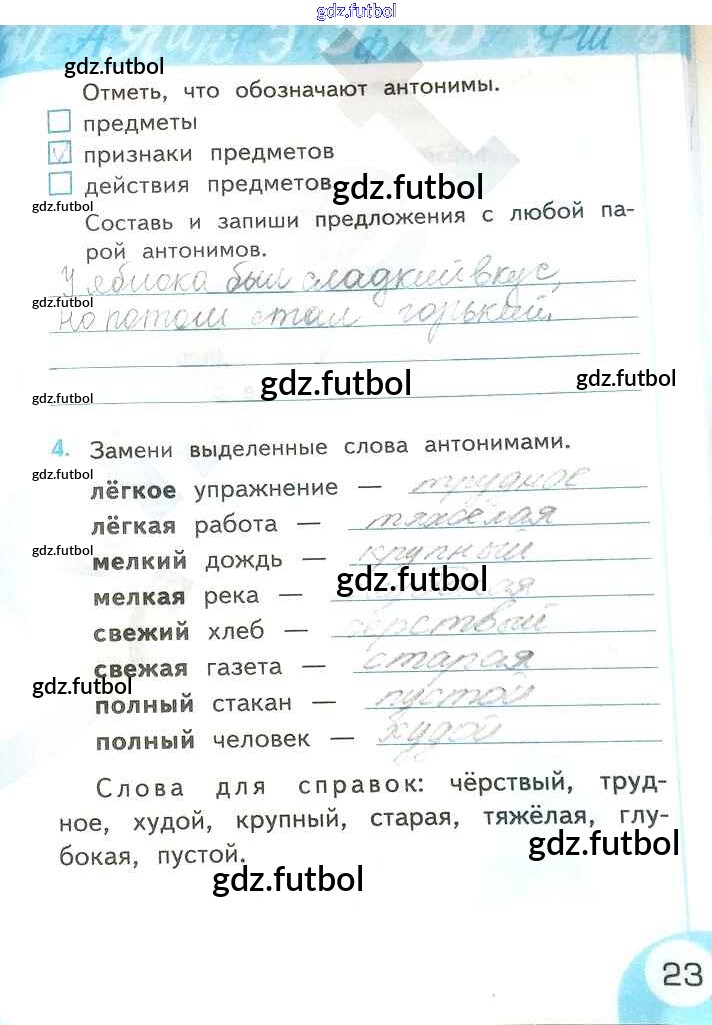 gdz.futbol
gdz.futbol
Отметь, что обозначают антонимы.
предметы
признаки предметов
действия предметов
gdz.futbol
gdz.futbol
Составь и запиши предложения с любой па-
рой антонимов.
У яблока был сладкий вкус,
gdz.futbol
но потом стал горький.
gdz.futbol
gdz.futbol
gdz.futbol
4. Замени выделенные слова антонимами.
gdz.futbol
лёгкое упражнение — трудное
лёгкая работа — тяжёлая
gdz.futbol
мелкий дождь — крупный
gdz.futbol
мелкая река —
свежий хлеб — чёрствый
свежая газета — старая
gdz.futbol
полный стакан — пустой
полный человек — худой
Слова для справок: чёрствый, труд-
ное, худой, крупный, старая, тяжёлая, глу-
бокая, пустой.
gdz.futbol
gdz.futbol
23